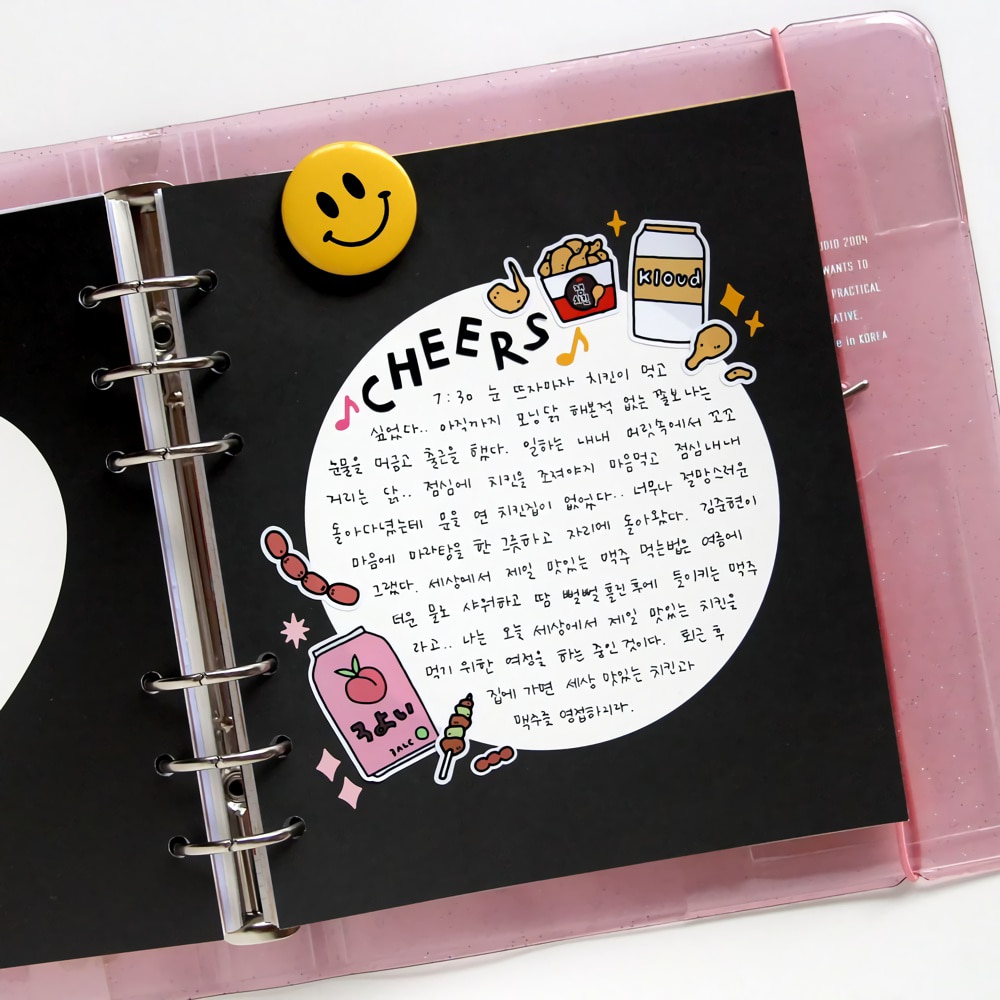 CHEERS
Kloud
7:30 눈 뜨자마자 치킨이 먹고
싶었다.. 아직까지 모닝닭 해본적 없는 쫄보나는
눈물을 머금고 출근을 했다. 일하는 내내 머릿속에서 꼬꼬
거리는 닭.. 점심에 치킨을 조져야지 마음먹고 점심내내
돌아다녔는데 문을 연 치킨집이 없었다.. 너무나 절망스러운
마음에 마라탕을 한 그릇하고 자리에 돌아왔다. 김준현이
그랬다. 세상에서 제일 맛있는 맥주 먹는법은 여름에
더운 물로 샤워하고 땀 뻘뻘 흘린후에 들이키는 맥주
라고.. 나는 오늘 세상에서 제일 맛있는 치킨을
먹기 위한 여정을 하는 중인 것이다. 퇴근 후
집에 가면 세상 맛있는 치킨과
맥주를 영접하리라.
3ALC
UDIO 2004
WANTS TO
PRACTICAL
ATIVE.
e in KOREA